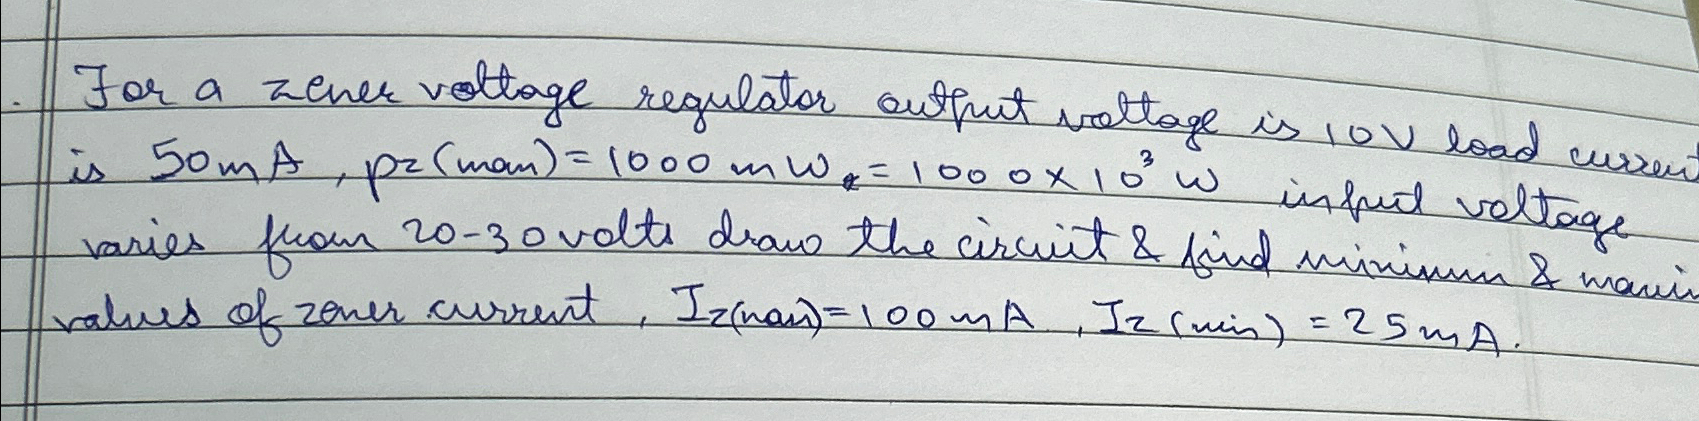 For a zener voltage regulator output voltage is 10V load current
is 50mA, pz(man) = 1000 mW = 1000 x 10³ W input voltage
varies from 20-30volts draw the circuit & find minimum & maxi
values of zener current, Iz(max)=100mA, Iz(min) = 25mA.